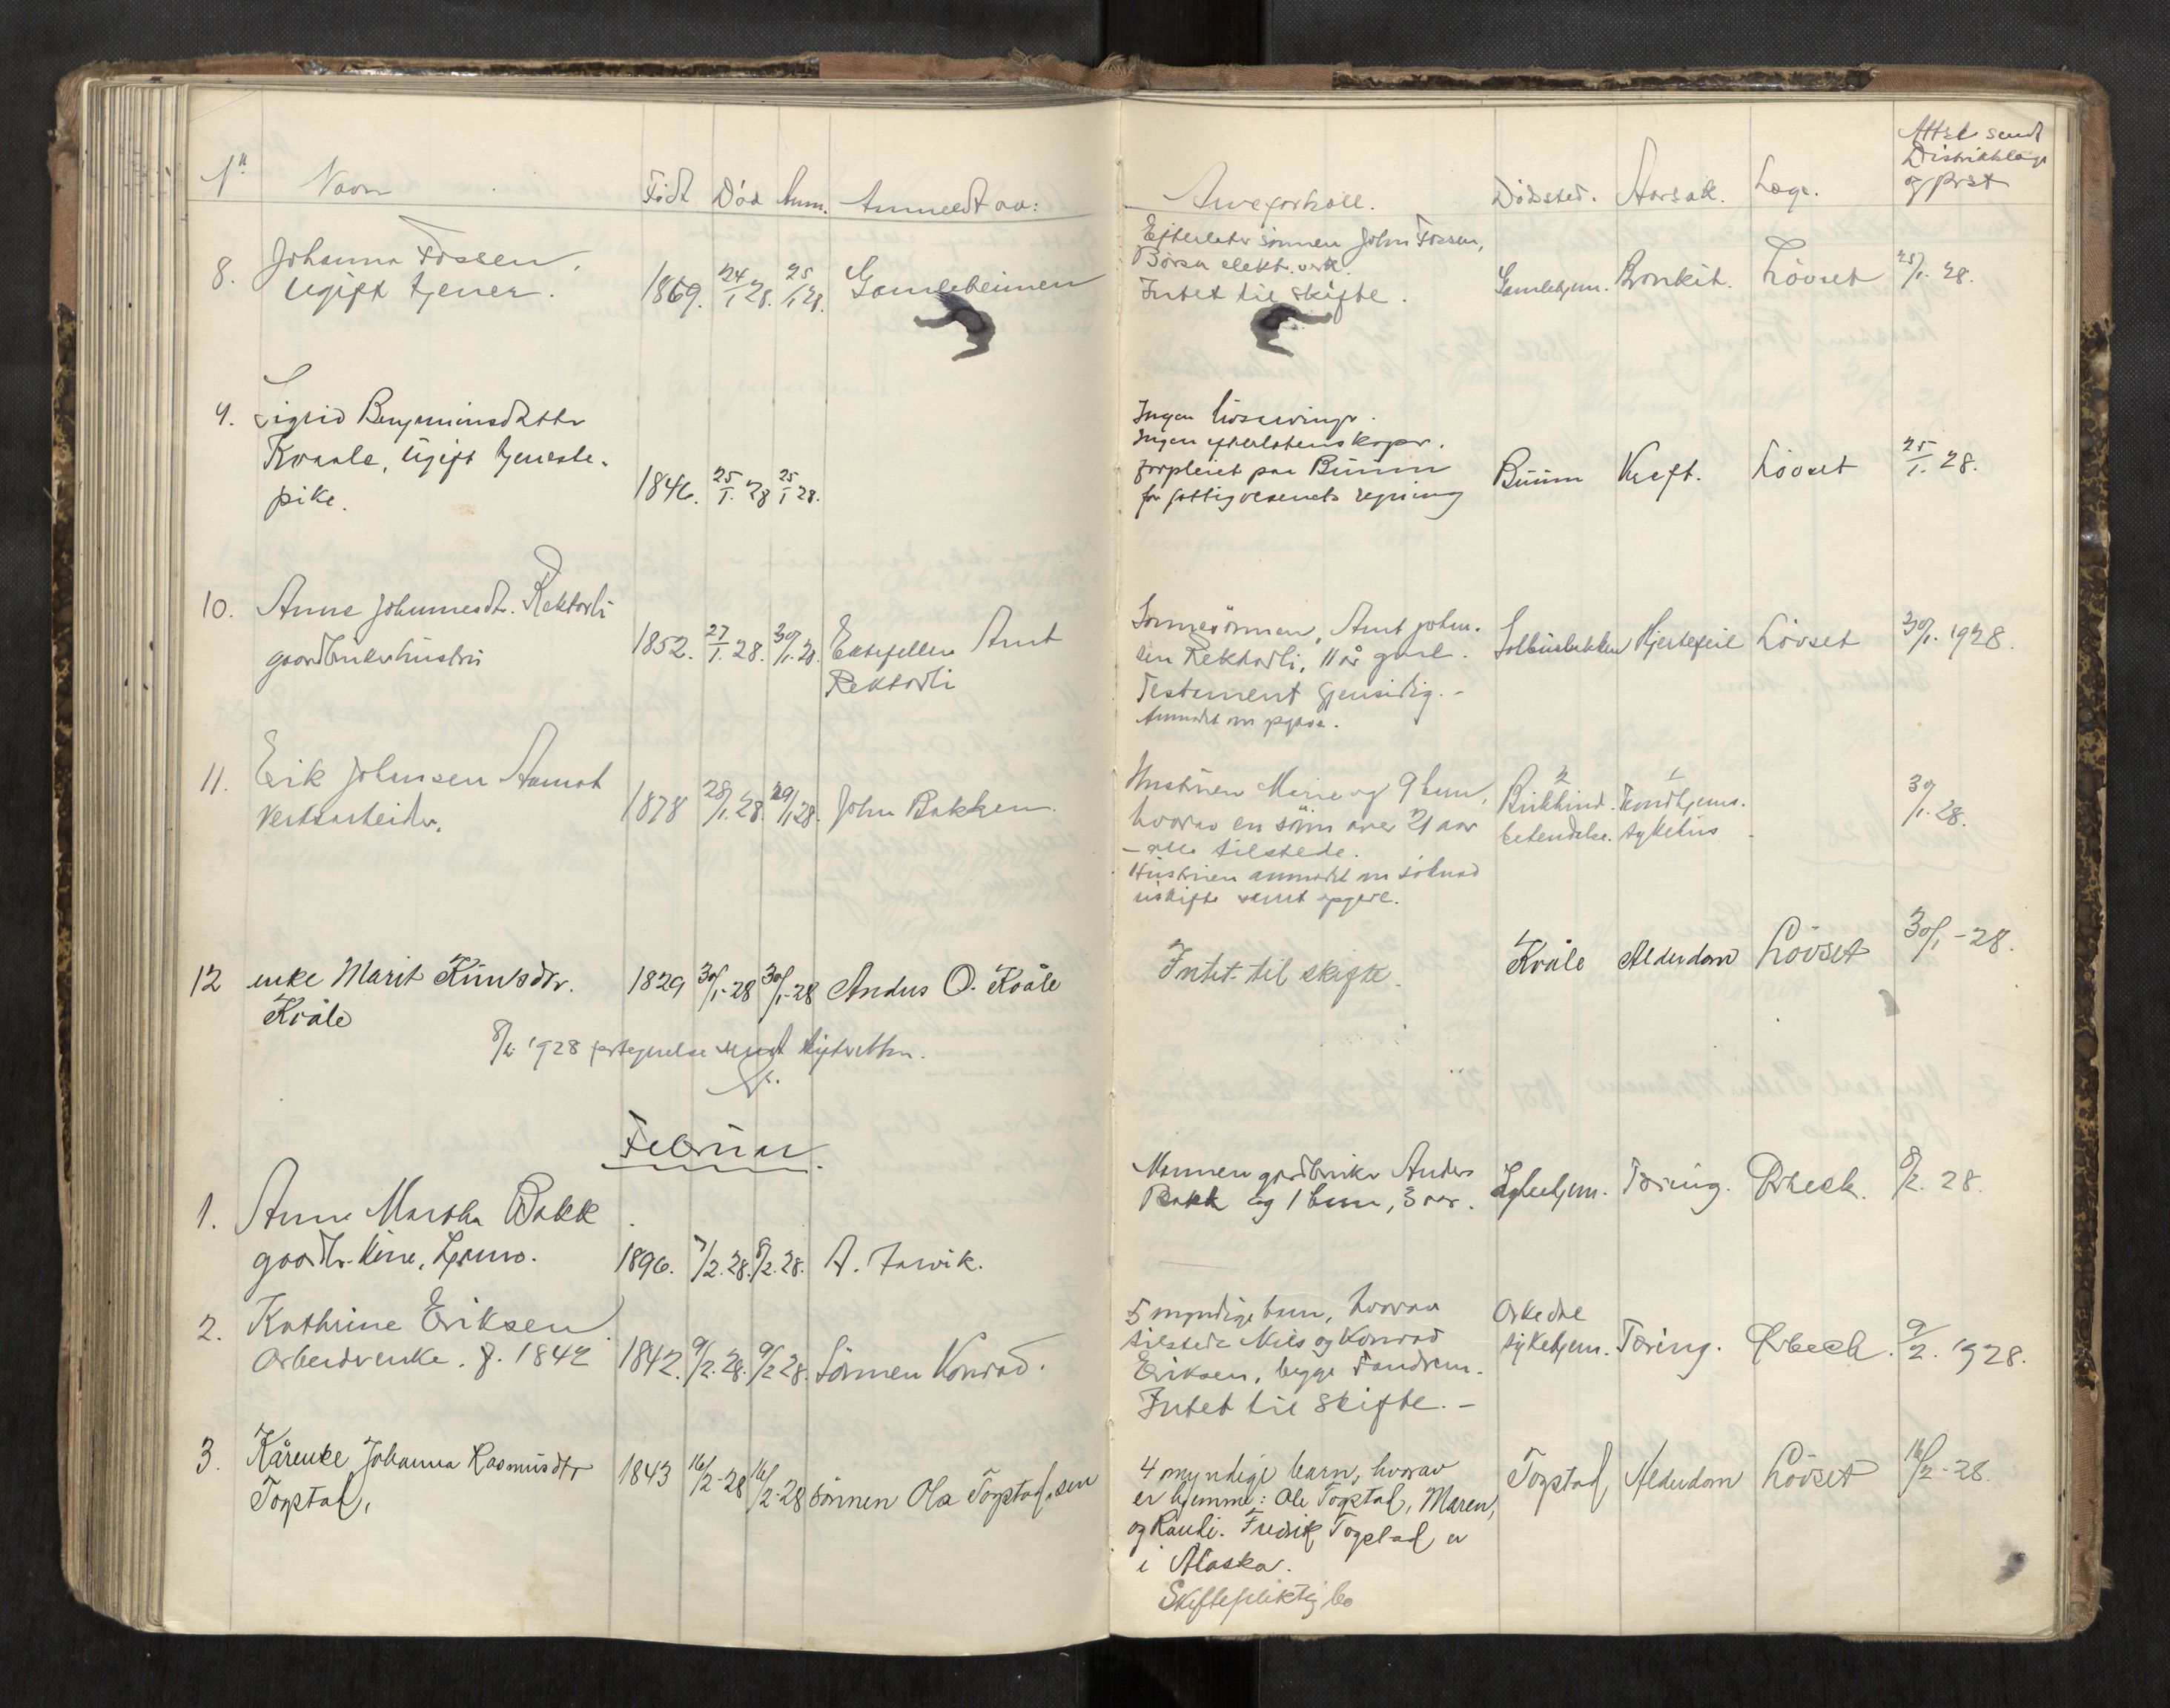 Nr. Navn Født Død Anm. Anmeldt av:
8. Johanna Fossen,
Ugift tjener. 1869. 24/1 28. 25/1 28. Gamleheimen
9. Sigrid Benjaminsdatter
Kvaale, Ugift tjeneste-
pike. 1846. 25/1. 28 25/1 28.
10. Anne Johannesdt. Rektorli
gaardbrukerhustru 1852. 27/1. 28. 30/1. 28. Ektefellen Arnt
Rektorli
11. Erik Johnsen Aamot
Verksarbeider. 1878 28/1. 28. 29/1 28. John Bakken.
12 enke Marit Knutsdtr. 1829 30/1-28 30/1-28 Anders O. Kvåle
Kvåle
8/2 1928 fortegnelse sendt skifteretten.
Februar.
1. Anne Martha Bakk
gaardbr. 1896. 7/2. 28. 8/2. 28. A. Jarvik.
2. Kathrine Eriksen
Arbeiderenke. f. 1842 1842. 9/2. 28. 9/2 28. Sønnen Konrad.
3. Kårenke Johanna Rasmusdtr 1843 16/2-28 16/2-28 sønnen Ola Togstad, sen
Togstad,
Arveforhold. Dødsted. Aarsak. Læge. Attst sendt
Distriktslæge
og prst
Efterlater sønnen John Fossen,
Børsa elektr. verk.
Intet til skifte. Gamlehjem. Bronkit. Løvset 25/1. 28.
Ingen livsarvinger.
Ingen efterlatenskaper.
forpleiet paa Buunn
for fattigvesenets regning Buunn Kreft. Løvset 25/1. 28.
Sønnesønnen, Arnt John-
sen Rektorli, 11 år gml. Solbusbakken Hjertefeil Løvset 30/1. 1928.
Testament gjensidig. -
Anmodet om opgave.
Hustruen Marie og 9 barn,
hvorav en sønn over 21 aar
- alle tilstede. betendelse. sykehus 30/1. 28.
Hustruen anmodet om søknad
uskifte samt opgave.
Intet til skifte. Kvåle Alderdom Løvset 30/1-28.
Mannen gardbruker Anders
Bakk og 1 barn, 3 aar. Sykehjem. Tæring. Ørbeck. 8/2. 28.
5 myndige barn, hvorav Orkedal
tilstede Nils og Konrad sykehjem. Tæring. Ørbech. 9/2. 1928.
Eriksen, begge Fandrem.
Intet til skifte. -
4 myndige barn, hvorav Togstad, Alderdom Løvset 16/2-28.
er hjemme: Ole Togstad, Maren,
og Randi. Fredrik Togstad er
i Alaska.
Skiftepliktig bo